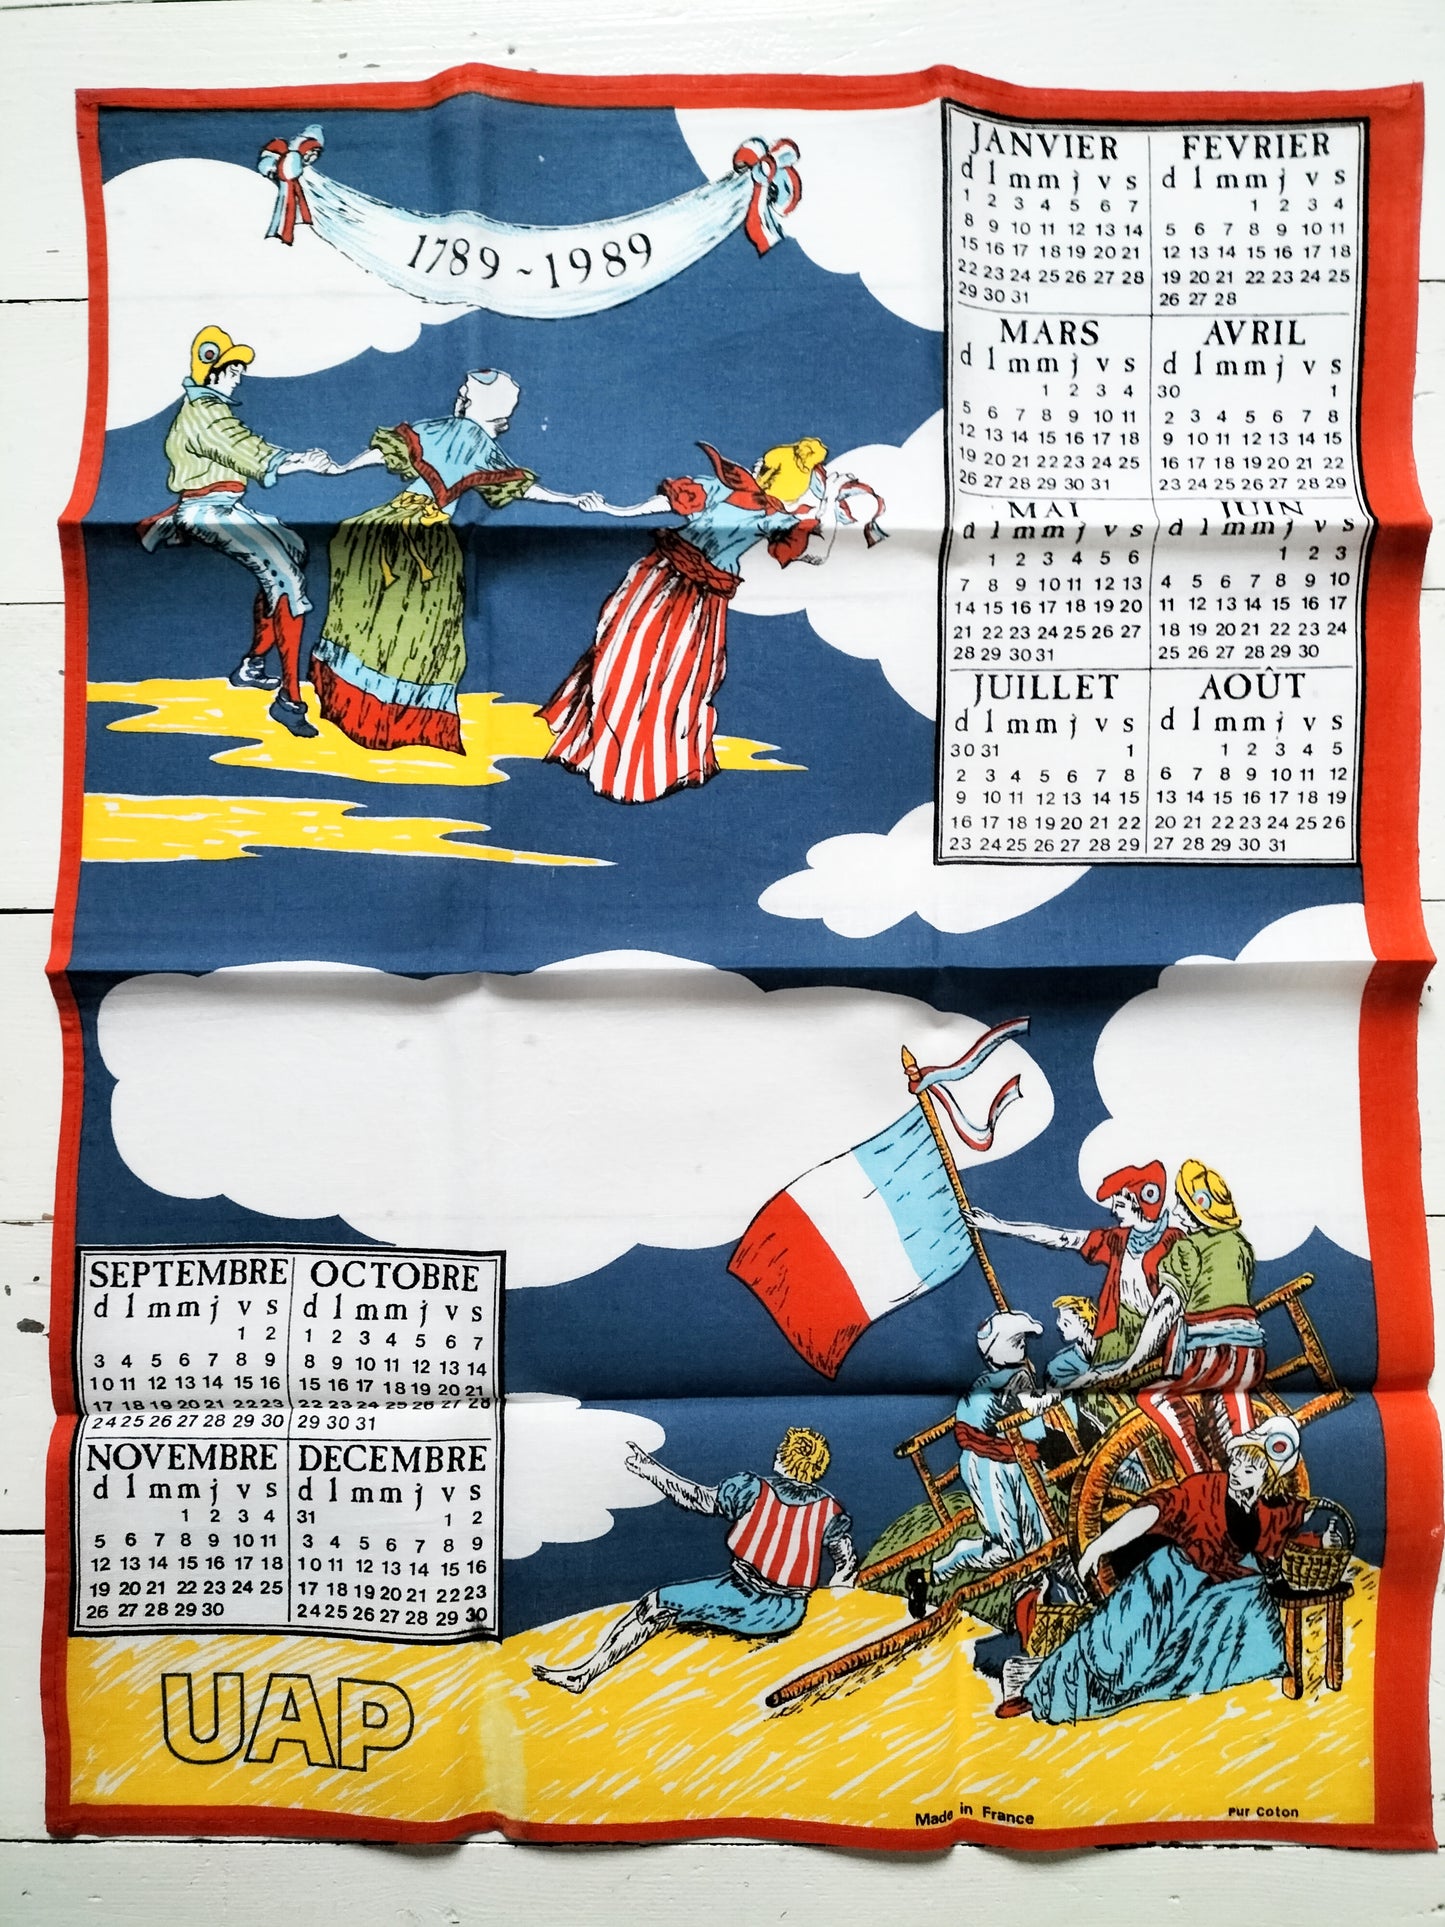 1789 ~ 1989
JANVIER
d l m m j v s
1 2 3 4 5 6 7
8 9 10 11 12 13 14
15 16 17 18 19 20 21
22 23 24 25 26 27 28
29 30 31
FEVRIER
d l m m j v s
1 2 3 4
5 6 7 8 9 10 11
12 13 14 15 16 17 18
19 20 21 22 23 24 25
26 27 28
MARS
d l m m j v s
1 2 3 4
5 6 7 8 9 10 11
12 13 14 15 16 17 18
19 20 21 22 23 24 25
26 27 28 29 30 31
AVRIL
d l m m j v s
30 1
2 3 4 5 6 7 8
9 10 11 12 13 14 15
16 17 18 19 20 21 22
23 24 25 26 27 28 29
MAI
d l m m j v s
1 2 3 4 5 6
7 8 9 10 11 12 13
14 15 16 17 18 19 20
21 22 23 24 25 26 27
28 29 30 31
JUIN
d l m m j v s
1 2 3
4 5 6 7 8 9 10
11 12 13 14 15 16 17
18 19 20 21 22 23 24
25 26 27 28 29 30
JUILLET
d l m m j v s
30 31 1
2 3 4 5 6 7 8
9 10 11 12 13 14 15
16 17 18 19 20 21 22
23 24 25 26 27 28 29
AOÛT
d l m m j v s
1 2 3 4 5
6 7 8 9 10 11 12
13 14 15 16 17 18 19
20 21 22 23 24 25 26
27 28 29 30 31
SEPTEMBRE
d l m m j v s
1 2
3 4 5 6 7 8 9
10 11 12 13 14 15 16
17 18 19 20 21 22 23
24 25 26 27 28 29 30
OCTOBRE
d l m m j v s
1 2 3 4 5 6 7
8 9 10 11 12 13 14
15 16 17 18 19 20 21
22 23 24 25 26 27 28
29 30 31
NOVEMBRE
d l m m j v s
1 2 3 4
5 6 7 8 9 10 11
12 13 14 15 16 17 18
19 20 21 22 23 24 25
26 27 28 29 30
DECEMBRE
d l m m j v s
31 1 2
3 4 5 6 7 8 9
10 11 12 13 14 15 16
17 18 19 20 21 22 23
24 25 26 27 28 29 30
UAP
Made in France
Pur Coton